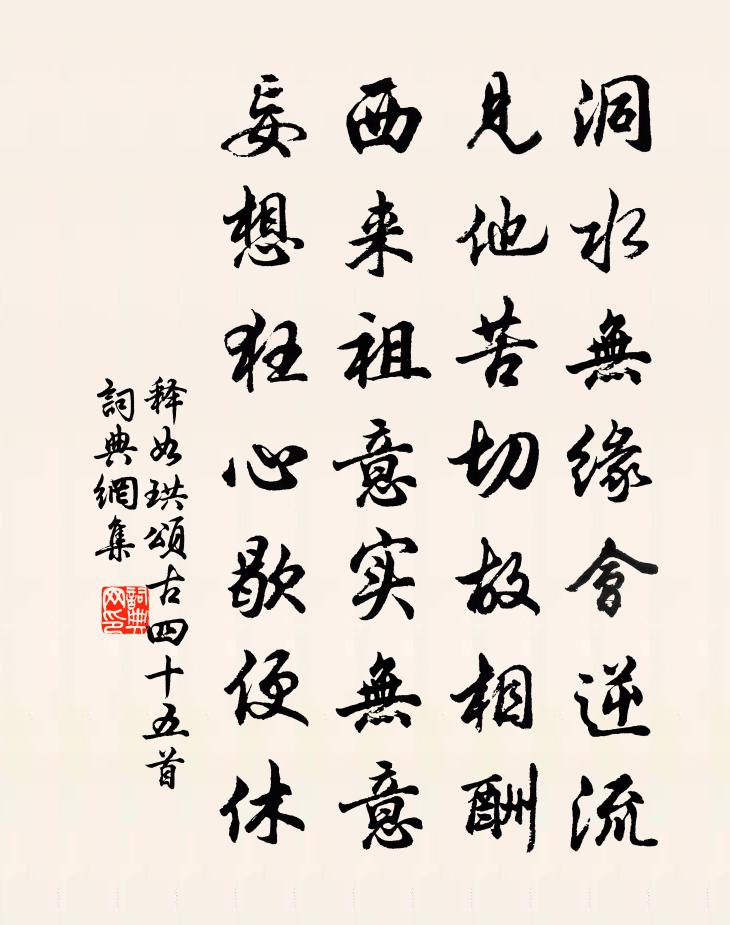 洞水無緣會逆流
見他苦切故相酬
西来祖意实無意
妄想狂心歇便休
释如珙頌古四十五首
詞典網集
詞典网印